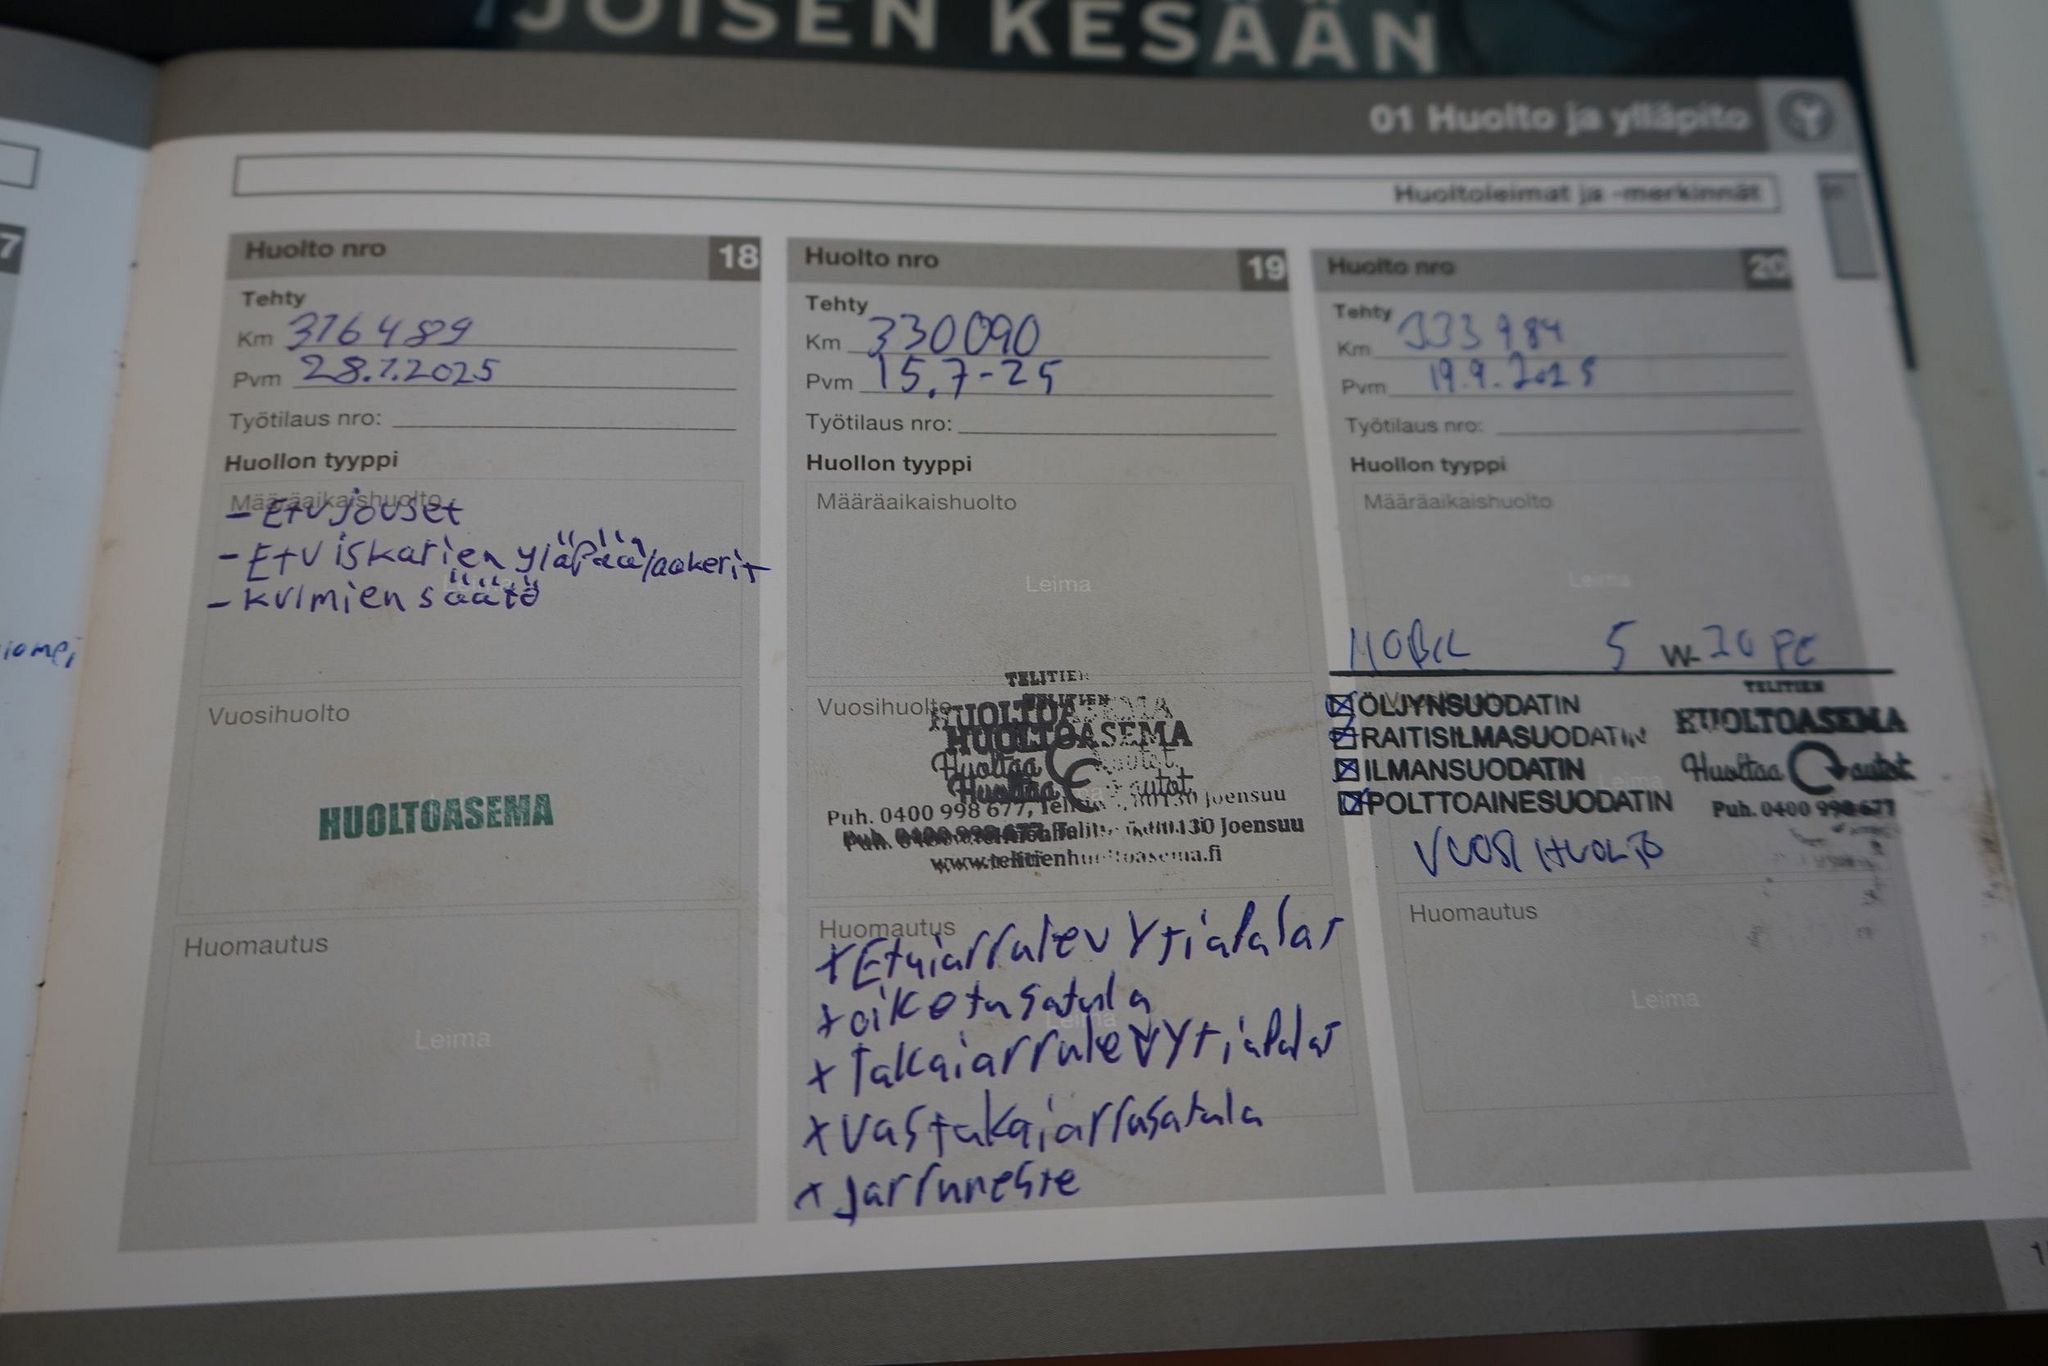 JOISEN KESÄÄN
01 Huolto ja ylläpito
Huoltoleimat ja -merkinnät
7
Huolto nro 18
Tehty
Km 316489
Pvm 28.1.2025
Työtilaus nro:
Huollon tyyppi
Määräaikaishuolto
- Etu jouset
- Etu iskarien yläpäälaakerit
- kulmien säätö
Vuosihuolto
HUOLTOASEMA
Huomautus
Leima
Huolto nro 19
Tehty
Km 330090
Pvm 15.7-25
Työtilaus nro:
Huollon tyyppi
Määräaikaishuolto
Leima
Vuosihuolto
TELITIEN
HUOLTOASEMA
Huoltaa autot
Puh. 0400 998 677, 80130 Joensuu
www.telitienhuoltoasema.fi
Huomautus
x Etujarrulevyt japalat
x oiketusatula
x Takajarrulevyt japalat
x vastakajarrusatula
x Jarruneste
Huolto nro 20
Tehty
Km 333984
Pvm 19.9.2025
Työtilaus nro:
Huollon tyyppi
Määräaikaishuolto
Leima
MOBIL 5 W-30
ÖLJYNSUODATIN
RAITISILMASUODATIN
ILMANSUODATIN
POLTTOAINESUODATIN
TELITIEN
HUOLTOASEMA
Huoltaa autot
Puh. 0400 998 677
VUOSIHUOLTO
Huomautus
Leima